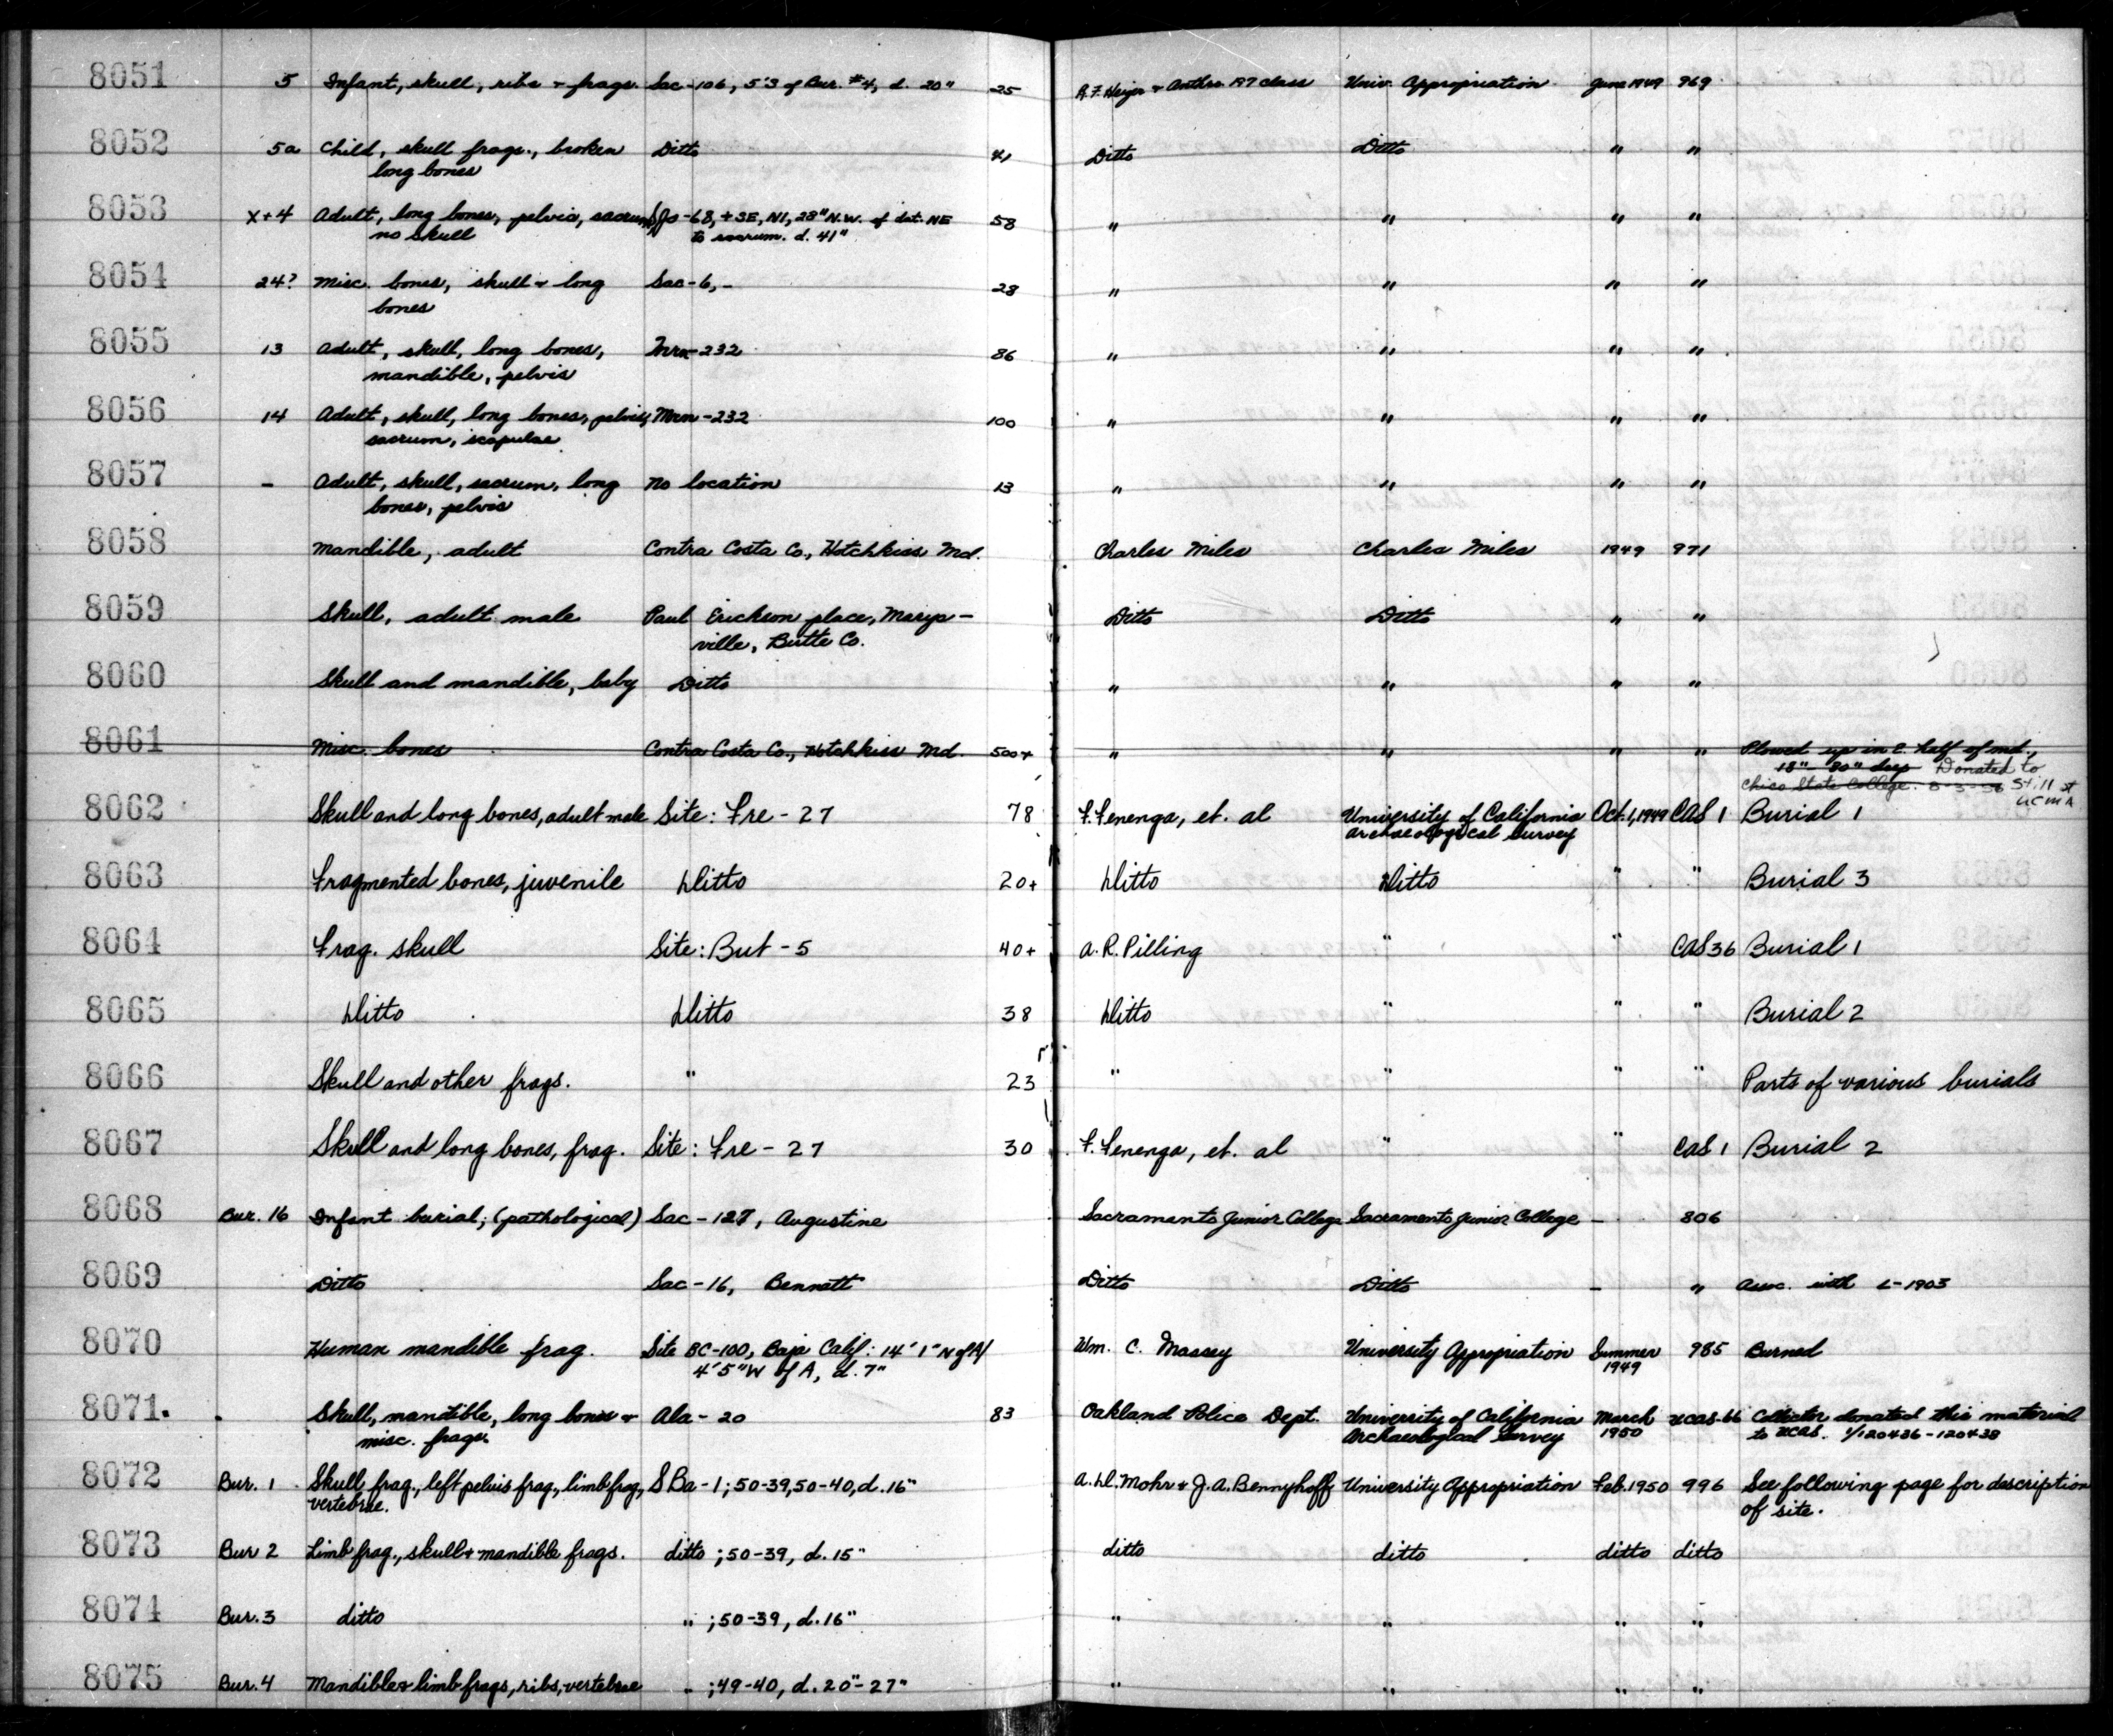 8051 5 Infant, skull, ribs + frags. Sac-106, 5'3 of Bur. #4, d. 20" 25 R.F. Heizer + Anthro 197 class Univ. Appropriation June 1949 969
8052 5a Child, skull frags., broken Ditto 41 Ditto Ditto " "
long bones
8053 X+4 Adult, long bones, pelvis, sacrum, SJo-68, +3E, N1, 28" N.W. of dat. NE 58 " " " "
no skull to sacrum. d. 41"
8054 24? Misc. bones, skull + long Sac-6, - 28 " " " "
bones
8055 13 Adult, skull, long bones, Mrn-232 86 " " " "
mandible, pelvis
8056 14 Adult, skull, long bones, pelvis, Mrn-232 100 " " " "
sacrum, scapulae
8057 - Adult, skull, sacrum, long No location 13 " " " "
bones, pelvis
8058 Mandible, adult Contra Costa Co., Hotchkiss Md. Charles Miles Charles Miles 1949 971
8059 Skull, adult male Paul Erickson place, Marys- Ditto Ditto " "
ville, Butte Co.
8060 Skull and mandible, baby Ditto " " " "
8061 Misc. bones Contra Costa Co., Hotchkiss Md. 500+ " " " " Plowed up in E. half of md.,
18"-30" deep Donated to
Chico State College. 8-3-56 Still at
UCMA
8062 Skull and long bones, adult male Site: Fre-27 78 F. Fenenga, et. al University of California Oct. 1, 1949 CAS 1 Burial 1
Archaeological Survey
8063 Fragmented bones, juvenile Ditto 20+ Ditto Ditto " " Burial 3
8064 Frag. skull Site: But-5 40+ A.R. Pilling " " CAS 36 Burial 1
8065 Ditto Ditto 38 Ditto " " " Burial 2
8066 Skull and other frags. " 23 " " " " Parts of various burials
8067 Skull and long bones, frag. Site: Fre-27 30 F. Fenenga, et. al " " CAS 1 Burial 2
8068 Bur. 16 Infant burial; (pathological) Sac-127, Augustine Sacramento Junior College Sacramento Junior College - 806
8069 Ditto Sac-16, Bennett Ditto Ditto - " Assc. with L-1903
8070 Human mandible frag. Site BC-100, Baja Calif: 14' 1" N of A/ Wm. C. Massey University Appropriation Summer 985 Burned
4'5" W of A, d. 7" 1949
8071. Skull, mandible, long bones + Ala-20 83 Oakland Police Dept. University of California March UCAS-66 Collector donated this material
misc. frags. Archaeological Survey 1950 to UCAS. 1/120436-120438
8072 Bur. 1 Skull frag., left pelvis frag., limb frag., SBa-1; 50-39, 50-40, d. 16" A.D. Mohr + J.A. Bennyhoff University Appropriation Feb. 1950 996 See following page for description
vertebrae. of site.
8073 Bur 2 Limb frag., skull + mandible frags. ditto ; 50-39, d. 15" ditto ditto ditto ditto
8074 Bur. 3 ditto " ; 50-39, d. 16" " " " "
8075 Bur. 4 Mandible + limb frags, ribs, vertebrae " ; 49-40, d. 20"-27" " " " "